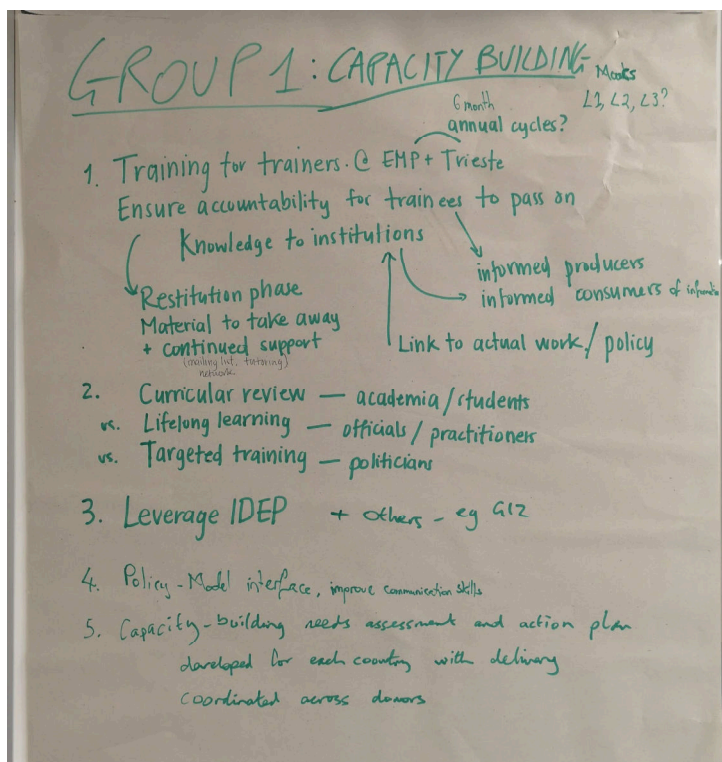 GROUP 1: CAPACITY BUILDING
Mooks
L1, L2, L3?
6 month
annual cycles?
1. Training for trainers. @ EMP + Trieste
Ensure accountability for trainees to pass on
Knowledge to institutions
informed producers
informed consumers of
Restitution phase
Material to take away
+ continued support
(mailing list, tutoring)
network
Link to actual work / policy
2. Curricular review — academia / students
vs. Lifelong learning — officials / practitioners
vs. Targeted training — politicians
3. Leverage IDEP + others - eg GIZ
4. Policy-Model interface, improve communication skills
5. Capacity-building needs assessment and action plan
developed for each country with delivery
coordinated across donors